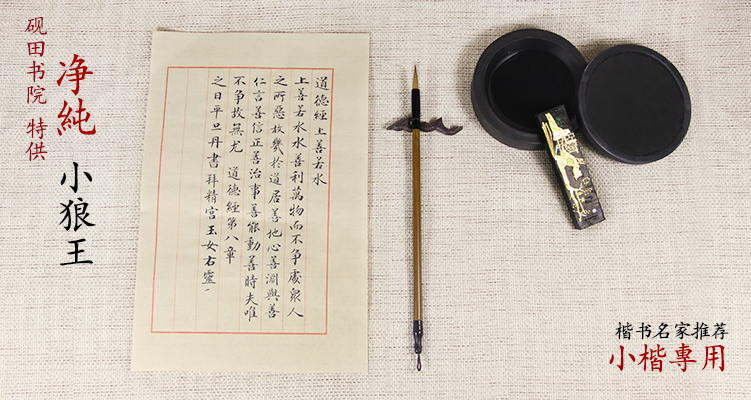 砚田书院 特供
净純
小狼王
道德經上善若水
上善若水水善利萬物而不争處衆人
之所惡故幾於道居善地心善淵與善
仁言善信正善治事善能動善時夫唯
不争故無尤 道德經第八章
之日平旦丹書拜精宫玉女右靈一
楷书名家推荐
小楷專用